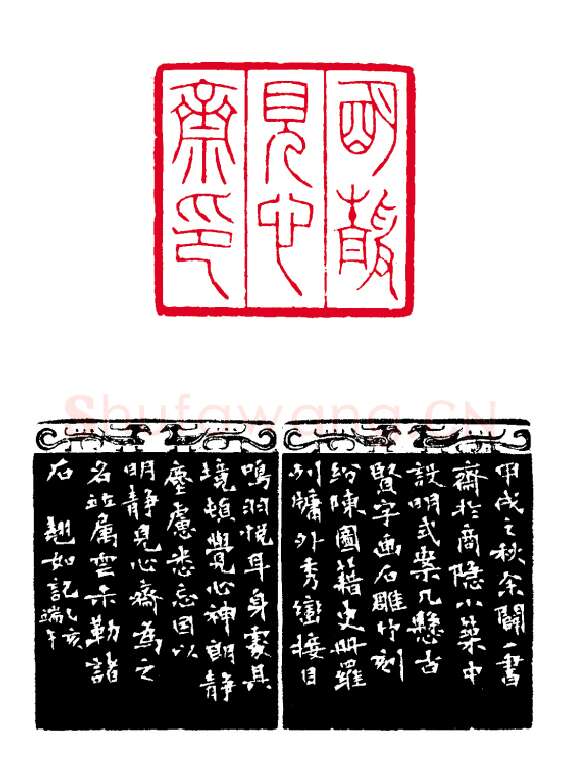 明静
見心
齋印
Shufawang.CN
甲戌之秋余闢一書
齋於商隐小築中
設明式案几懸古
賢字画石雕竹刻
紛陳圖籍史册羅
列牖外秀巒接目
鳴羽悦耳身處其
境頓覺心神朗静
塵慮悉忘因以
明静見心齋為之
名並属雲禾勒諸
石 翹如記乙亥
端午